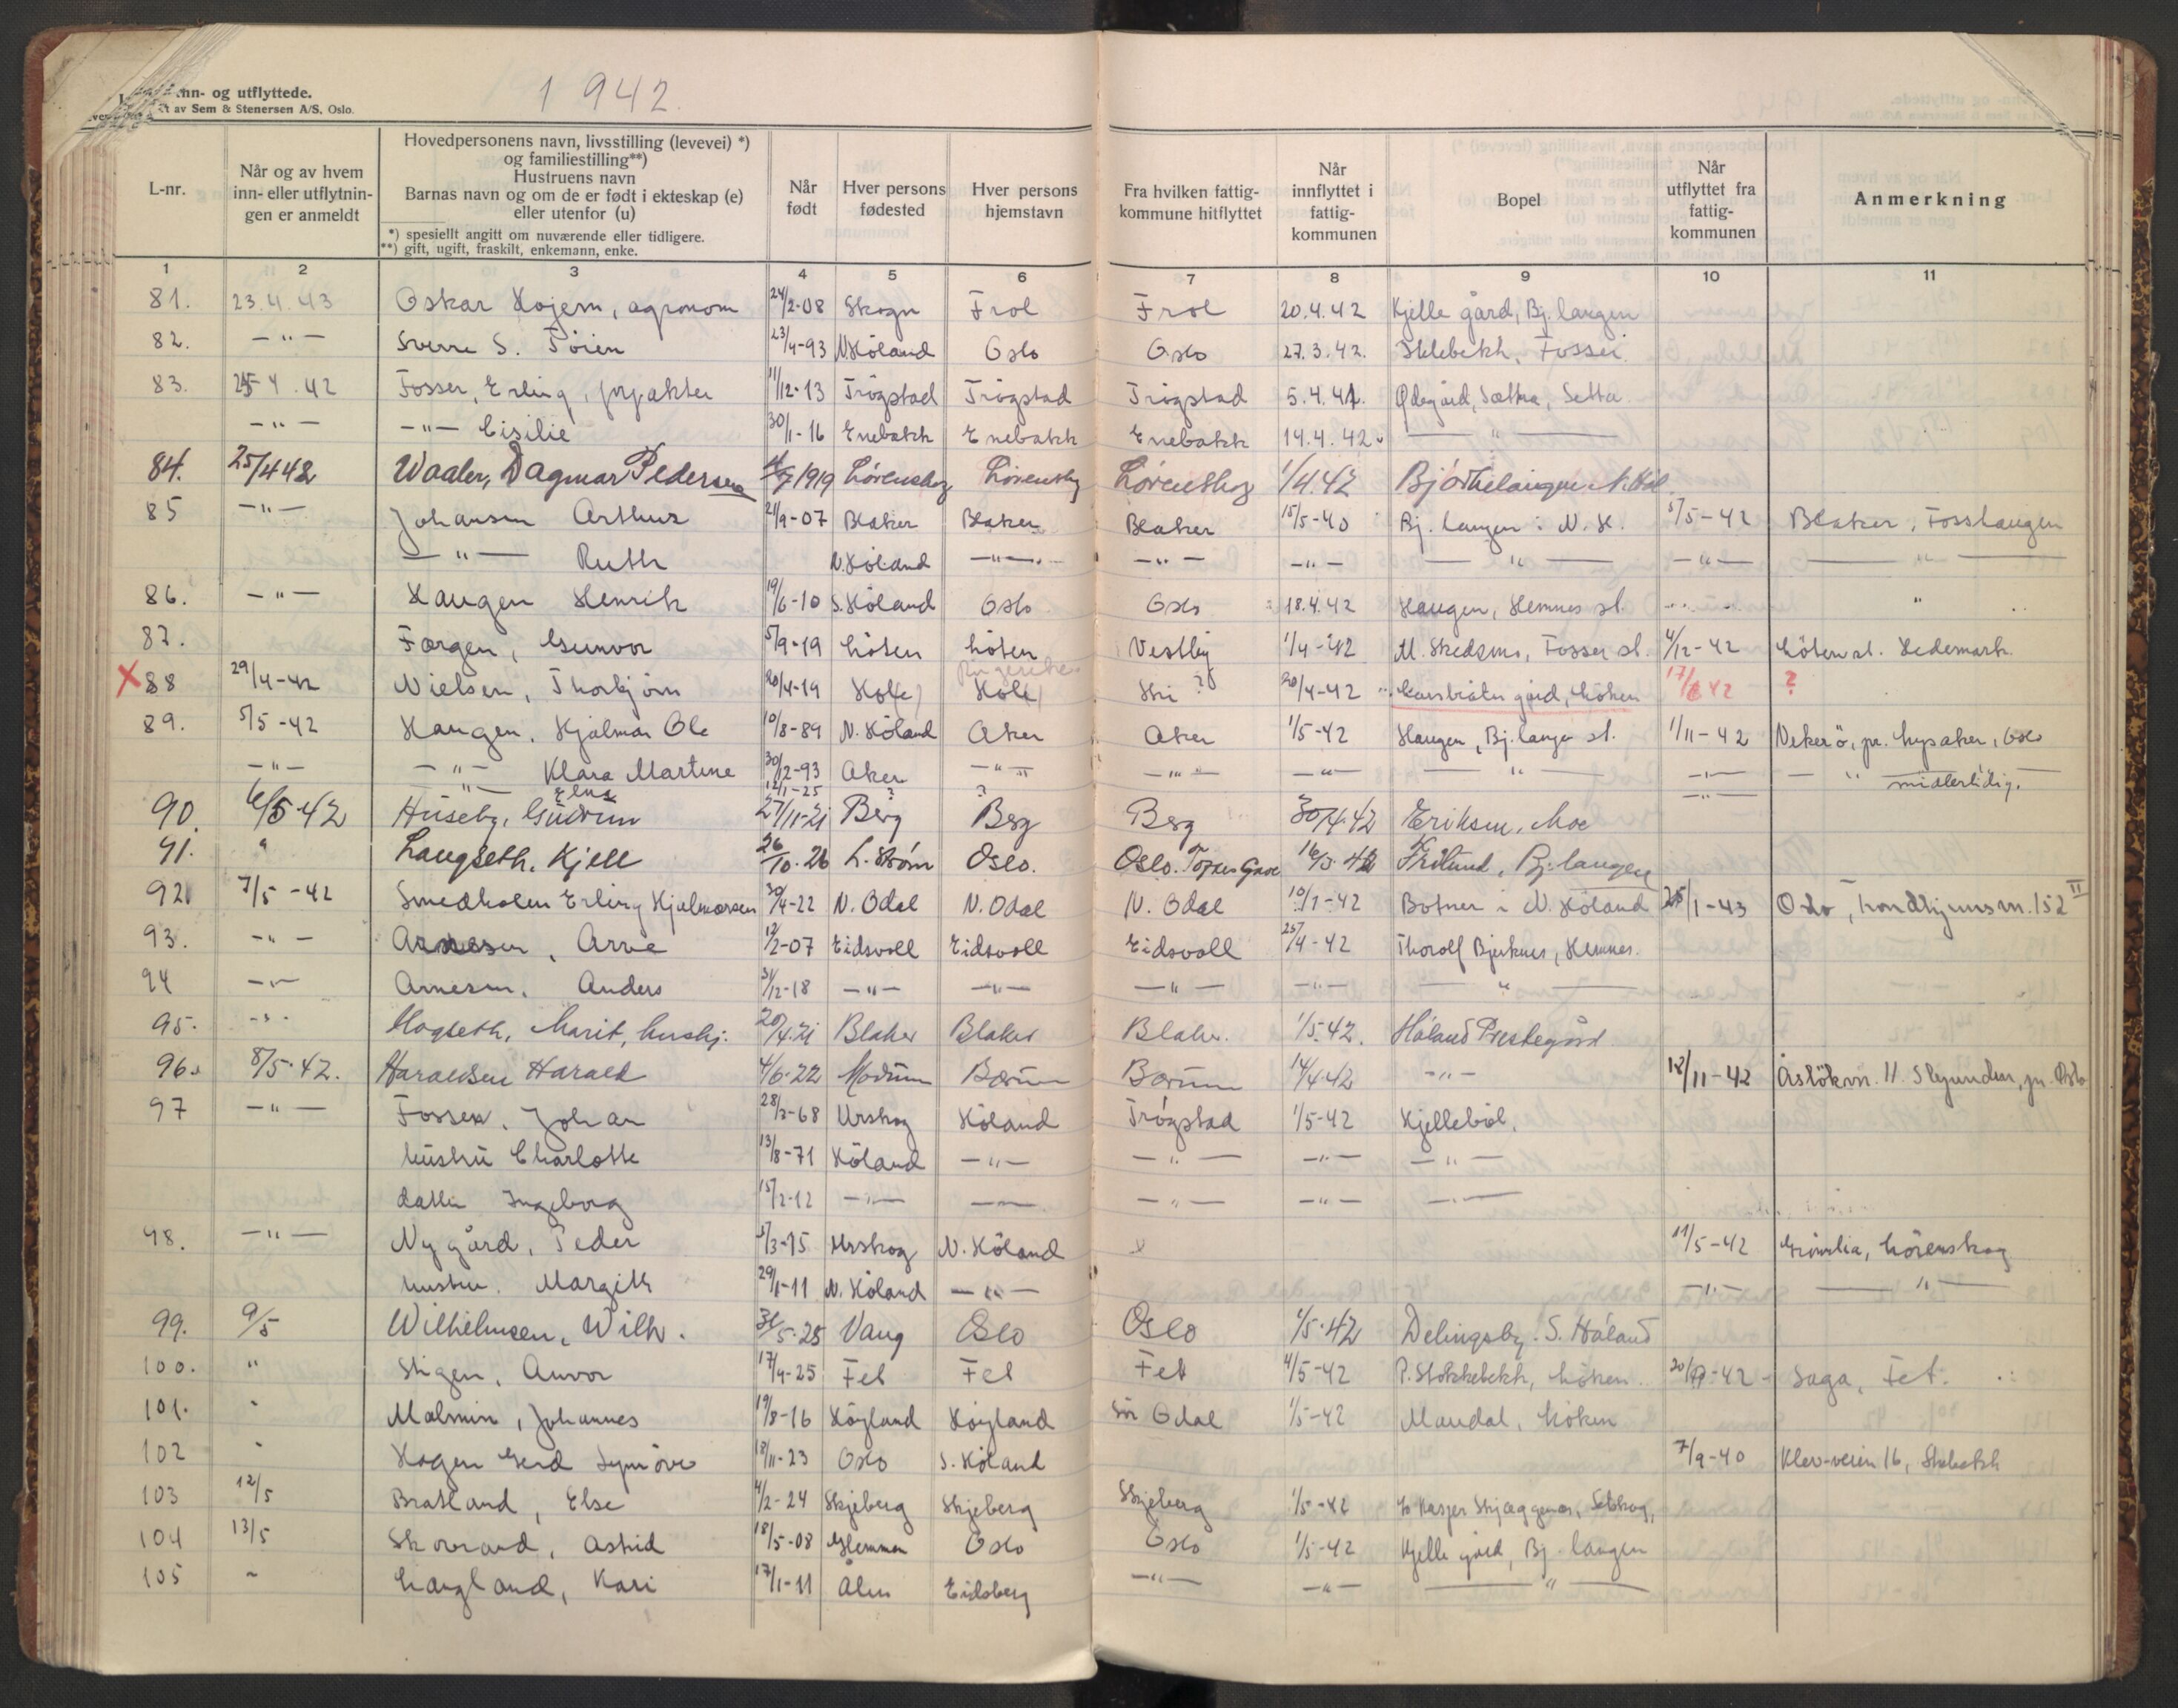 nn- og utflyttede.
t av Sem & Stenersen A/S. Oslo.
1942.
L-nr. | Når og av hvem inn- eller utflytnin-gen er anmeldt | Hovedpersonens navn, livsstilling (levevei) *) og familiestilling**) Hustruens navn Barnas navn og om de er født i ekteskap (e) eller utenfor (u) *) spesiellt angitt om nuværende eller tidligere. **) gift, ugift, fraskilt, enkemann, enke. | Når født | Hver persons fødested | Hver persons hjemstavn | Fra hvilken fattig-kommune hitflyttet | Når innflyttet i fattig-kommunen | Bopel | Når utflyttet fra fattig-kommunen | Anmerkning
1 | 2 | 3 | 4 | 5 | 6 | 7 | 8 | 9 | 10 | 11
81. | 23.4.43 | Oskar Hojem, agronom | 24/2-08 | Skogn | Frol | Frol | 20.4.42 | Kjelle gård, Bj.langen
82. | -"- | Sverre S. Töien | 23/4-93 | N.Höland | Oslo | Oslo | 27.3.42. | Fosser.
83. | 25-4.42 | Fosser, Erling, forpakter | 11/12-13 | Trögstad | Trögstad | Trögstad | 5.4.42. | Ødegård, Setta
-"- | -"- Cisilie | 30/1-16 | Enebakk | Enebakk | Enebakk | 14.4.42. | -"-
84. | 25/4 42 | Waaler, Dagmar Pedersen | /7 1919 | Lörenskog | Lörenskog | Lörenskog | 1/4.42 | Björkelangen N.Höl.
85 | -"- | Johansen Arthur | 21/9-07 | Blaker | Blaker | Blaker | 15/5-40 | Bj.langen i N.H. | 5/5-42 | Blaker, Fosshaugen
-"- Ruth | N.Höland | -"- | -"- | -"- | -"- | -"- | -"-
86. | -"- | Haugen Henrik | 19/6-10 | S.Höland | Oslo | Oslo | 18.4.42 | Haugen, Hemnes st. | -"- | "
87. | Færgen, Gunvor | 5/9-19 | Löten | Löten | Vestby | 1/4-42 | M. Skedsmo, Fosser st. | 4/12-42 | Löten st. Hedemark.
X 88 | 29/4-42 | Nielsen, Thorbjörn | 20/4-19 | Hole | Ringerike Hole | Ski ? | 20/4-42 | gård, Löken | 17/6 42 | ?
89. | 5/5-42 | Haugen, Hjalmar Ole | 10/8-89 | N. Höland | Aker | Aker | 1/5-42 | Haugen, Bj.langen st. | 1/11-42 | Vekerö, pr. Lysaker, Oslo
-"- | -"- Klara Martine | 30/12-93 | Aker | -"- | -"- | -"- | -"- | -"- | -"- midlertidig.
-"- Else | 12/1-25 | ? | ? | -"-
90. | 6/5-42 | Huseby, Gudrun | 27/11-21 | Berg | Berg | Berg | 30/4.42 | Eriksen, Moe
91. | " | Langseth, Kjell | 26/10.26 | L.ström | Oslo. | Oslo. | 16/3.42 | Fritund, Bj.langen
92 | 7/5-42 | Smedholen Erling Hjalmarsen | 30/4-22 | N. Odal | N. Odal | N. Odal | 10/1-42 | Botner i N. Höland | 25/1-43 | Oslo, Trondhjemsvn. 152 II
93. | -"- | Arnesen, Arve | 12/2-07 | Eidsvoll | Eidsvoll | Eidsvoll | 25/4-42 | Thorolf Bjerknes, Hemnes.
94 | -"- | Arnesen, Anders | 31/12-18 | -"- | -"- | -"- | -"- | -"-
95. | -"- | Hogseth, Marit, hushj. | 20/4.21 | Blaker | Blaker | Blaker. | 1/5.42. | Höland Prestegård
96. | 8/5.42. | Haraldsen Harald | 4/6.22 | Modum | Bærum | Bærum | 14/4.42 | -"- | 12/11-42 | Åslökvn. 11. Stejundun, pr. Oslo
97 | -"- | Fosser, Johan | 28/3-68 | Urskog | Höland | Trögstad | 1/5-42 | Kjelleböl.
hustru Charlotte | 13/8-71 | Höland | -"- | -"- | -"- | -"-
datter Ingeborg | 15/2-12 | -"- | -"- | -"- | -"- | -"-
98. | -"- | Nygård, Peder | 5/3-15 | Urskog | N. Höland | 11/5-42 | Grönlia, Lörenskog
hustru. Margith | 29/1-11 | N. Höland | -"- | -"- | -"-
99. | 9/5 | Wilhelmsen, Wilh. | 31/5.25 | Vang | Oslo | Oslo | 1/5.42 | Delingsby. S. Höland
100. | " | Stigen, Anvor | 17/4-25 | Fet | Fet | Fet | 4/5-42 | P. Stokkebekk, Löken. | 20/9-42 | Saga, Fet.
101. | " | Malmin, Johannes | 19/8-16 | Höyland | Höyland | Sör Odal | 1/5-42 | Maudal, Löken
102 | " | Hagen Gerd Synnöve | 18/11-23 | Oslo | S. Höland | 7/9-40 | Klev-veien 16, Stabekk
103 | 12/5 | Bratland, Else | 4/2-24 | Skjeberg | Skjeberg | Skjeberg | 1/5-42 | Kasper Setskog,
104 | 13/5 | Skovrand, Astrid | 18/5-08 | Glemmen | Oslo | Oslo | 1/5-42 | Kjelle gård, Bj.langen
105 | " | Langland, Kari | 17/1-11 | Ålen | Eidsberg | -"- | -"- | -"-